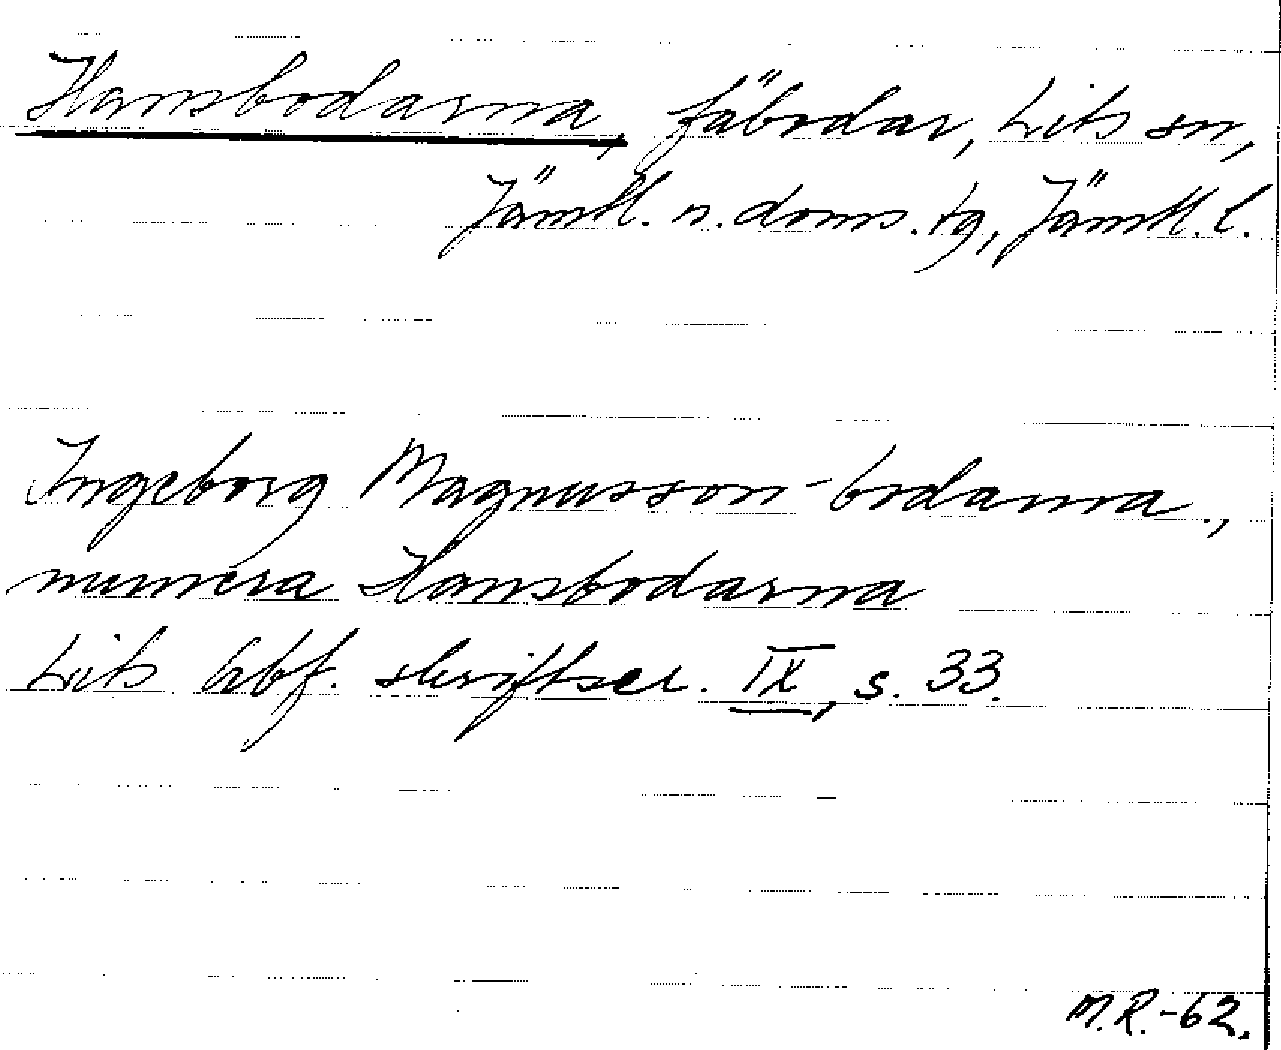 Hansbodarna, fäbodar, Lits sn,
Jämtl. n. doms. tg, Jämtl. l.
Ingeborg Magnusson-bodarna,
numera Hansbodarna
Lits hbf. skriftser. IX, s. 33.
M.R.-62.